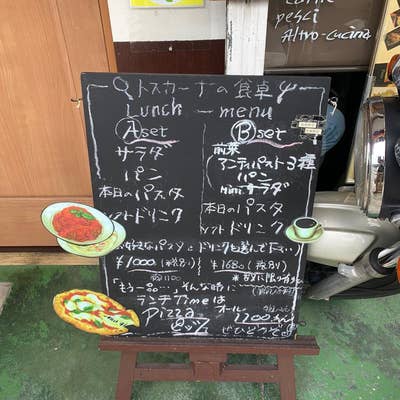 pesci
Altro-cucina
トスカーナの食卓
Lunch menu
A set
サラダ
パン
本日のパスタ
ソフトドリンク
B set
前菜
(アンティパスト3種
パン
miniサラダ
本日のパスタ
ソフトドリンク
お好きなパスタとドリンクを選んで下さい
¥1000(税別)
¥1680(税別)
税込1100
「もう一品…」そんな時に
ランチTimeは
Pizza
オール
1100
ぜひどうぞ